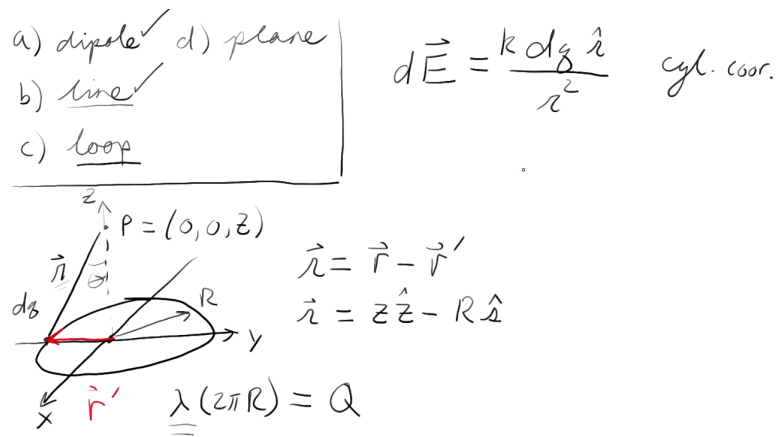 a) dipole ✓ d) plane
b) line ✓
c) loop
d𝐄⃗ = k dq 𝓇̂ / 𝓇² cyl. coor.
z
P = (0,0,z)
𝓇⃗
θ
dq
R
y
x
r⃗'
𝓇⃗ = r⃗ - r⃗'
𝓇⃗ = zẑ - Rŝ
λ(2πR) = Q